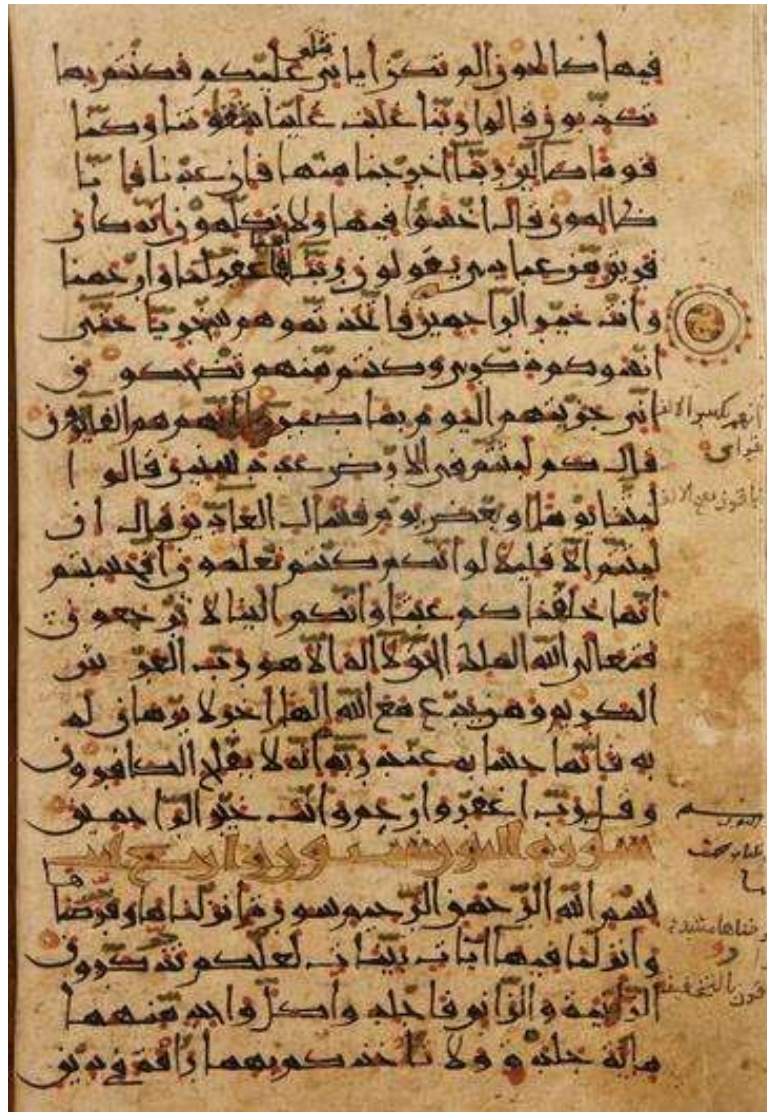 فيها كالحون الم تكن اياتي تتلى عليكم فكنتم بها
تكذّبون قالوا ربّنا غلبت علينا شقوتنا وكنّا
قوما ضالّين ربّنا اخرجنا منها فان عدنا فانّا
ظالمون قال اخسئوا فيها ولا تكلّمون انّه كان
فريق من عبادي يقولون ربّنا امنّا فاغفر لنا وارحمنا
وانت خير الرّاحمين فاتّخذتموهم سخريّا حتّى
انسوكم ذكري وكنتم منهم تضحكون
انّي جزيتهم اليوم بما صبروا انّهم هم الفائزون
قال كم لبثتم في الارض عدد سنين قالوا
لبثنا يوما او بعض يوم فسئل العادّين قال ان
لبثتم الّا قليلا لو انّكم كنتم تعلمون افحسبتم
انّما خلقناكم عبثا وانّكم الينا لا ترجعون
فتعالى الله الملك الحقّ لا اله الّا هو ربّ العرش
الكريم ومن يدع مع الله الها اخر لا برهان له
به فانّما حسابه عند ربّه انّه لا يفلح الكافرون
وقل ربّ اغفر وارحم وانت خير الرّاحمين
سورة النور ستون واربع ايات
بسم الله الرّحمن الرّحيم سورة انزلناها وفرضناها
وانزلنا فيها ايات بيّنات لعلّكم تذكّرون
الزّانية والزّاني فاجلدوا كلّ واحد منهما
مائة جلدة ولا تاخذكم بهما رافة في دين